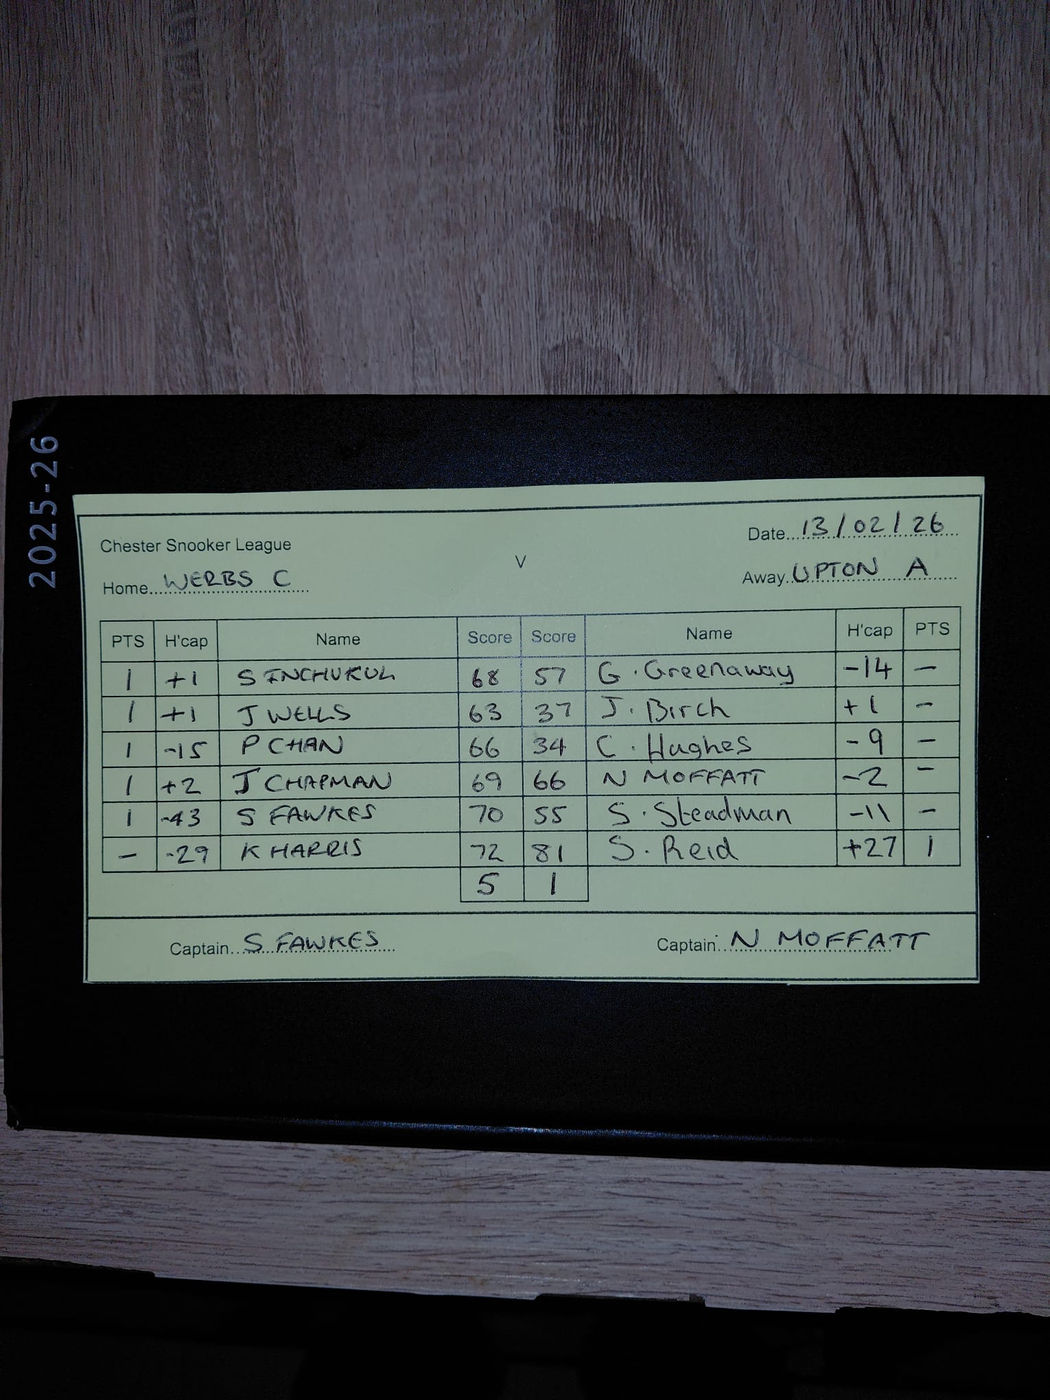 2025-26
Chester Snooker League
Date...13/02/26
V
Home...WERBS C
Away...UPTON A
PTS H'cap Name Score Score Name H'cap PTS
1 +1 S INCHUKUL 68 57 G. Greenaway -14 -
1 +1 J WELLS 63 37 J. Birch +1 -
1 -15 P CHAN 66 34 C. Hughes -9 -
1 +2 J CHAPMAN 69 66 N MOFFATT -2 -
1 -43 S FAWKES 70 55 S. Steadman -11 -
- -29 K HARRIS 72 81 S. Reid +27 1
5 1
Captain...S FAWKES
Captain...N MOFFATT